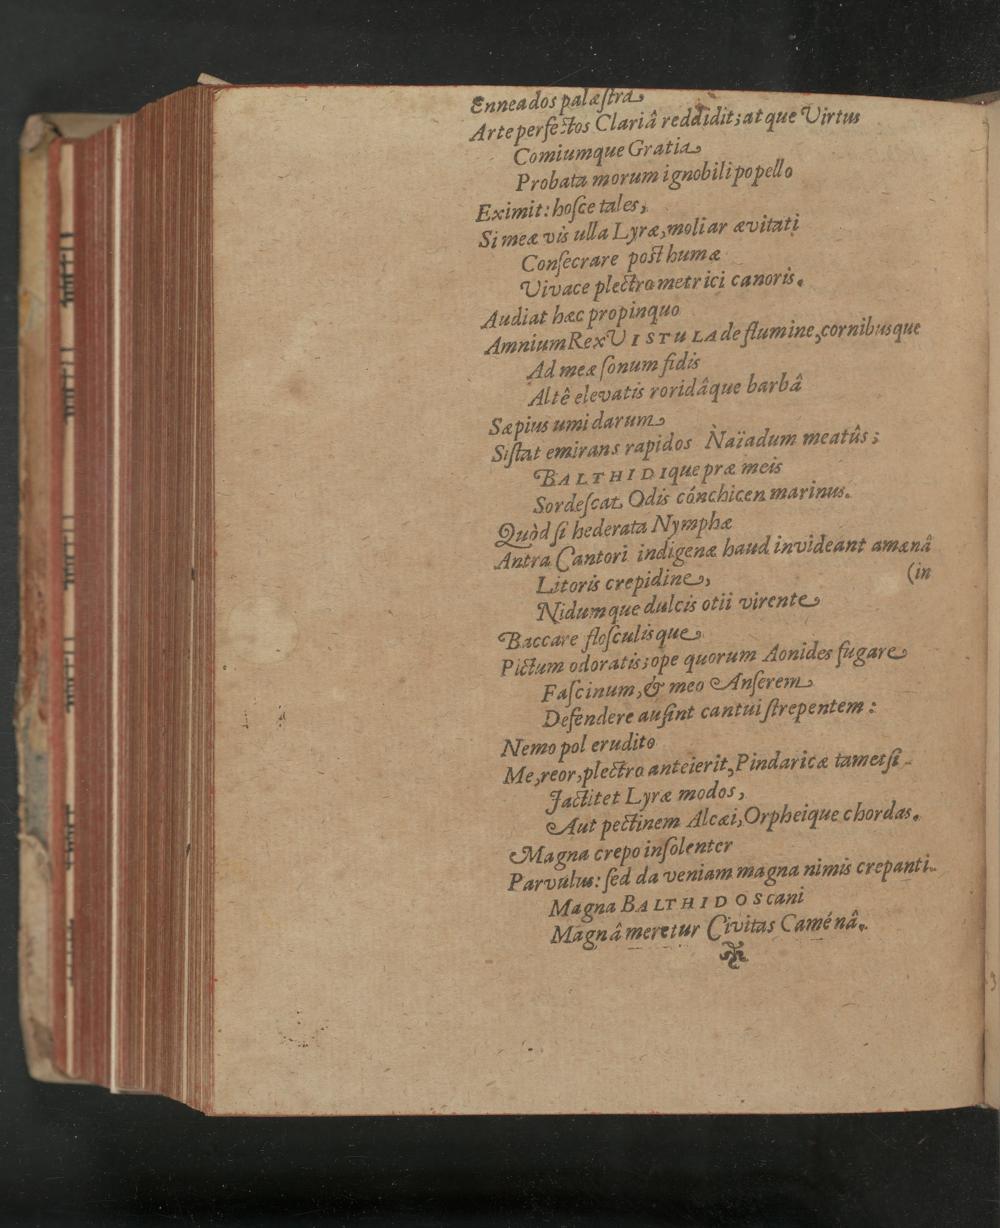 Enneados palæſtra
Arte perfectos Clariâ reddidit; atque Virtus
Comiumque Gratia
Probata morum ignobili popello
Eximit: hoſce tales,
Si meæ vis ulla Lyræ, moliar ævitati
Conſecrare poſthumæ
Vivace plectro metrici canoris.
Audiat hæc propinquo
Amnium Rex VISTULA de flumine, cornibusque
Ad meæ ſonum fidis
Altê elevatis roridâque barbâ
Sæpius umidarum
Siſtat emirans rapidos Naïadum meatûs;
BALTHIDIque præ meis
Sordeſcat Odis cónchicen marinus.
Quòd ſi hederata Nymphæ
Antra Cantori indigenæ haud invideant amænâ
(in
Litoris crepidine,
Nidumque dulcis otii virente
Baccare floſculisque
Pictum odoratis; ope quorum Aonides fugare
Faſcinum, & meo Anſerem
Defendere auſint cantui ſtrepentem:
Nemo pol erudito
Me, reor, plectro anteierit, Pindaricæ tametſi
Jactitet Lyræ modos,
Aut pectinem Alcæi, Orpheique chordas.
Magna crepo inſolenter
Parvulus: ſed da veniam magna nimis crepanti.
Magna BALTHIDOS cani
Magnâ meretur Civitas Caménâ.